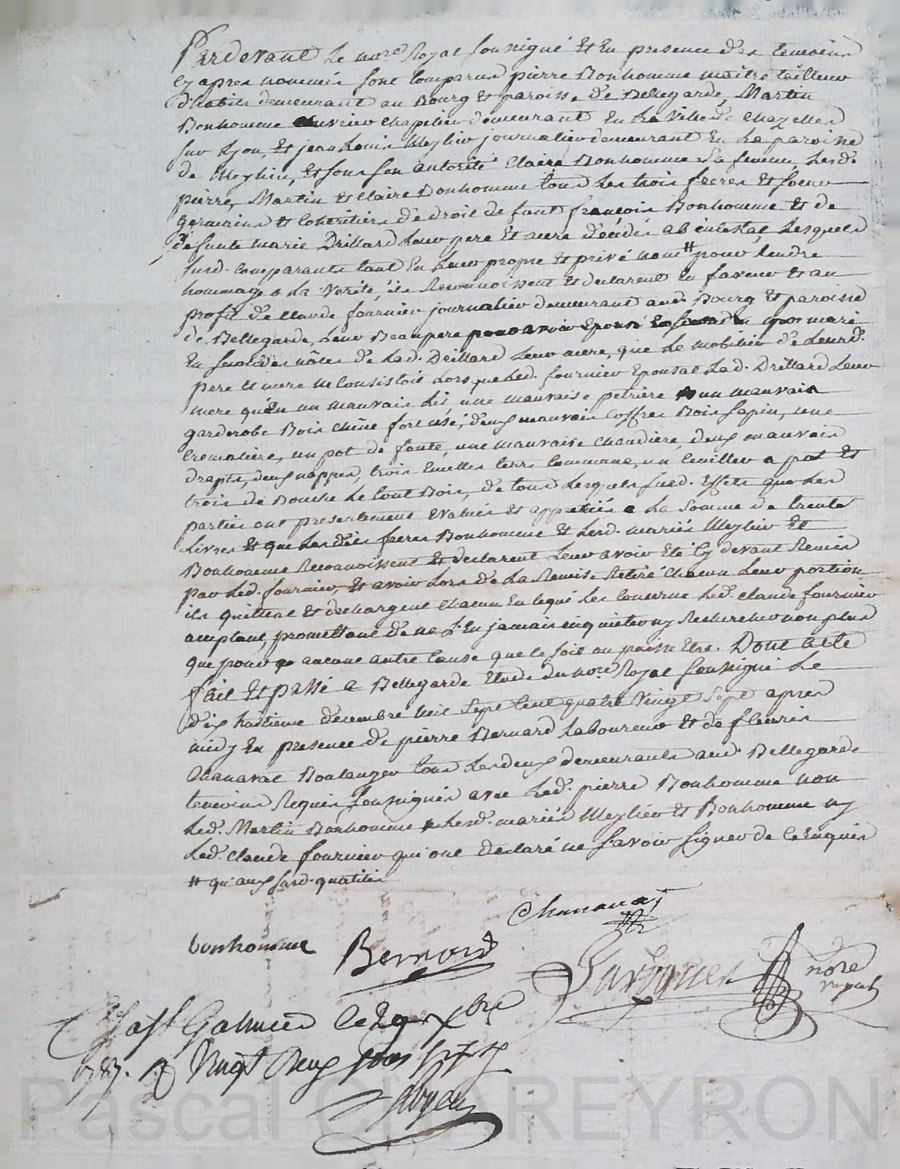 Pardevant Le nore. Royal Soussigné Et En presence des temoins
cy apres nommés sont comparus pierre Bonhomme maître tailleur
d'habits demeurant au Bourg Et paroisse de Bellegarde, Martin
Bonhomme ouvrier chapelier demeurant En La Ville de Chazelles
sur Lyon, Et jean Louis Meylier journalier demeurant En La paroisse
de Meylieu, Et sous son autorité Claire Bonhomme sa femme, Lesd.
pierre, Martin et Claire Bonhomme tous Les trois freres Et soeur
germains et Coheritiers de droit de faut françois Bonhomme Et de
defunte marie Drillard Leur pere Et mere décédés ab intestat Lesquels
susd. comparants tant En Leurs propre et privé noms # pour Rendre
hommage a La Verité, ils Reconnoissent et declarent En faveur et au
profit de Claude fournier journalier demeurant aud. Bourg Et paroisse
de Bellegarde, Leur Beaupere mari
En secondes nôces de Lad. Drillard Leur mere, que Le mobilier de Leurd.
pere et mere ne Consistoit Lors que Led. fournier Epousat Lad. Drillard Leur
mere qu'En un mauvais Lit une mauvaise petriere un mauvais
garderobe Bois chêne fort usé, deux mauvais Coffres Bois sapin, une
Cremaliere, un pot de fonte, une mauvaise chaudiere deux mauvais
draps, deux nappes, trois Ecuelles terre Commune, un Cuillier a pot Et
trois de Bouche Le tout Bois, de tous Lesquels susd. Effets que Les
parties ont presentement Evalués Et appretiés a La Somme de trente
Livres Et que Lesdits freres Bonhomme Et Lesd. mariés Meylier Et
Bonhomme Reconnoissent Et declarent Leur avoir Eté Cy devant Remis
par Led. fournier, Et avoir Lors de La Remise Retiré Chacun Leur portion
ils quittent Et dechargent Chacun En ce qui Les Concerne Led. Claude fournier
amplant, promettant de ne L'En jamais inquieter ny Rechercher non plus
que pour aucune autre Cause que Ce soit au puisse Etre. Dont acte
fait Et passé a Bellegarde Etude du nore. Royal Soussigné Le
dix huitieme decembre mil Sept Cent quatre Vingt Sept apres
midy En presence de pierre Bernard Laboureur Et de fleuris
Chanavat Boulanger tous Les deux demeurants aud. Bellegarde
temoins Requis, Soussignés avec Led. pierre Bonhomme non
Led. Martin Bonhomme Lesd. mariés Meylier Et Bonhomme ny
Led. Claude fournier qui ont declaré ne Savoir Signer de Ce Enquis
# qu'aux susd. qualités
Chanavat
bonhomme Bernard
nore
royal
Galmier Le 29 xbre
1787. R Vingt Deux sous six d
Pascal CHAREYRON